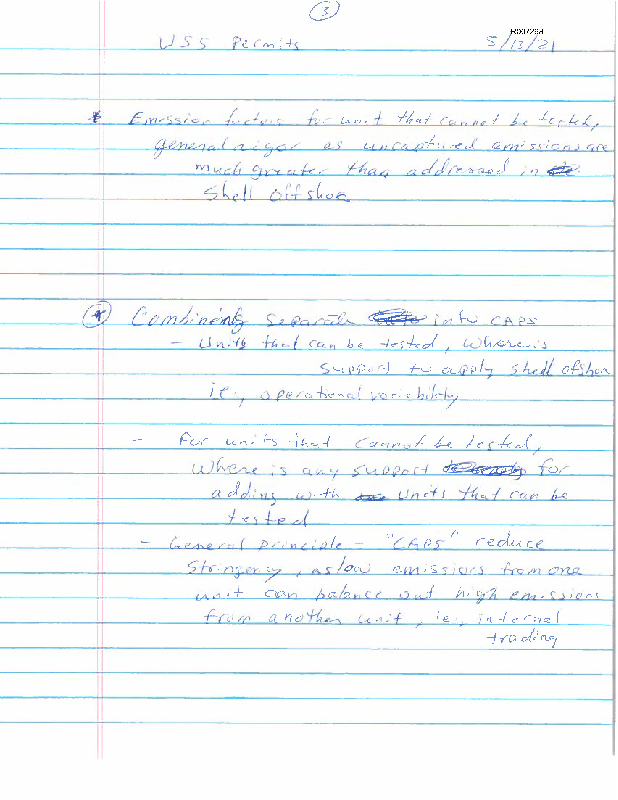 3
R007264
USS Permits 5/13/21
* Emission factors for unit that cannot be tested,
general rigor as uncaptured emissions are
much greater than addressed in
Shell offshore
* Combining separate into CAPS
- Units that can be tested, where is
support to apply Shell ofshore
ie., operational variability
- For units that cannot be tested,
where is any support for
adding with units that can be
tested
- General principle - "CAPS" reduce
stringency, as low emissions from one
unit can balance out high emissions
from another unit, ie., internal
trading